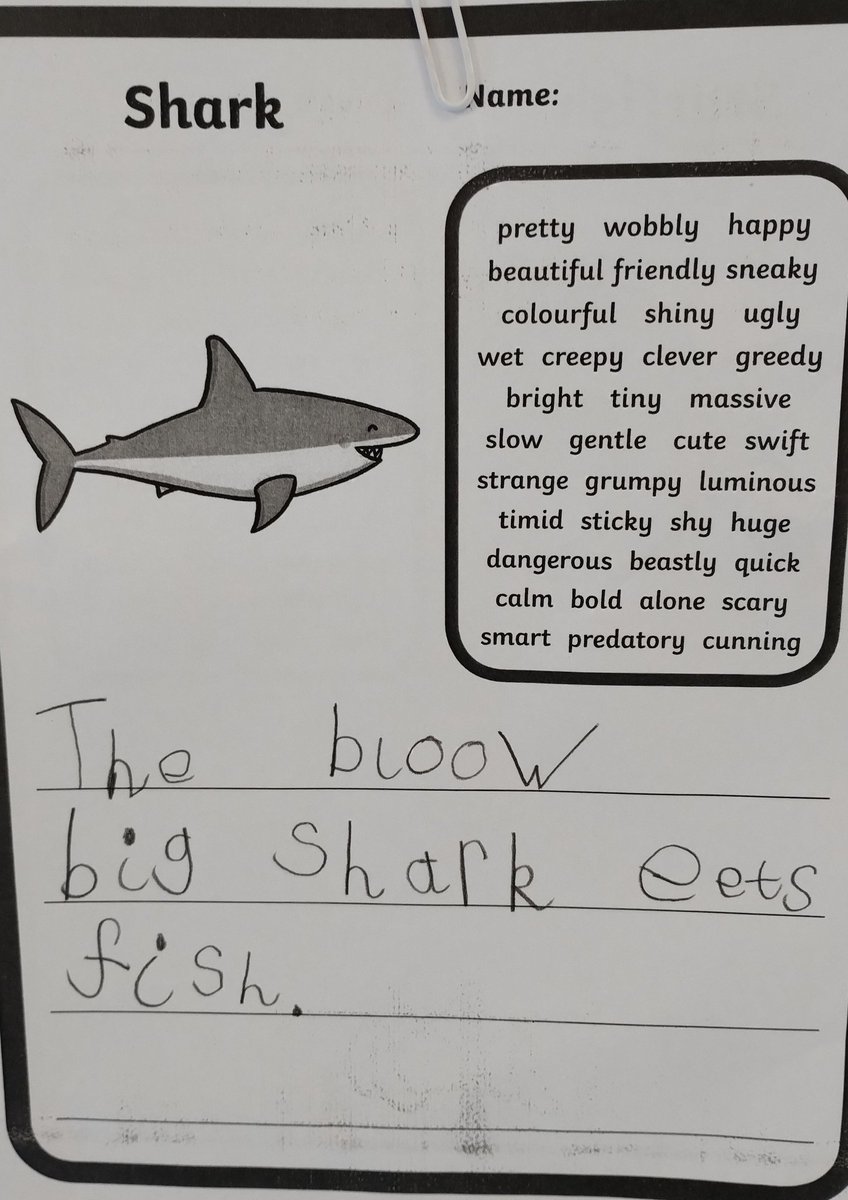 Shark
Name:
pretty wobbly happy
beautiful friendly sneaky
colourful shiny ugly
wet creepy clever greedy
bright tiny massive
slow gentle cute swift
strange grumpy luminous
timid sticky shy huge
dangerous beastly quick
calm bold alone scary
smart predatory cunning
The bloow
big shark eets
fish.